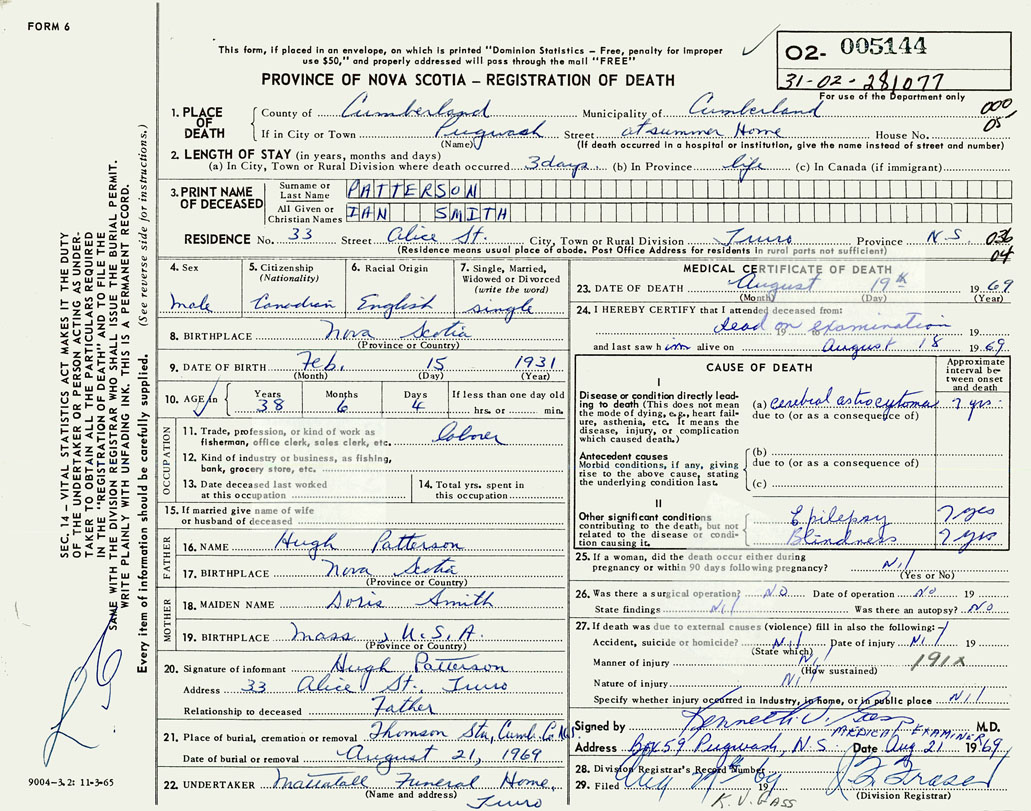 FORM 6
This form, if placed in an envelope, on which is printed "Dominion Statistics – Free, penalty for improper
use $50," and properly addressed will pass through the mail "FREE"
PROVINCE OF NOVA SCOTIA – REGISTRATION OF DEATH
02- 005144
31-02-281077
For use of the Department only
000
05
1. PLACE OF DEATH
County of Cumberland Municipality of Cumberland
If in City or Town Pugwash Street at summer Home House No.
(Name) (If death occurred in a hospital or institution, give the name instead of street and number)
2. LENGTH OF STAY (in years, months and days)
(a) In City, Town or Rural Division where death occurred 3 days (b) In Province life (c) In Canada (if immigrant)
3. PRINT NAME OF DECEASED
Surname or Last Name PATTERSON
All Given or Christian Names IAN SMITH
RESIDENCE No. 33 Street Alice St. City, Town or Rural Division Truro Province N.S. 036
04
(Residence means usual place of abode. Post Office Address for residents in rural parts not sufficient)
4. Sex
male
5. Citizenship
(Nationality)
Canadian
6. Racial Origin
English
7. Single, Married,
Widowed or Divorced
(write the word)
single
8. BIRTHPLACE Nova Scotia
(Province or Country)
9. DATE OF BIRTH Feb. 15 1931
(Month) (Day) (Year)
10. AGE in
Years Months Days If less than one day old
38 6 4 hrs. or min.
OCCUPATION
11. Trade, profession, or kind of work as
fisherman, office clerk, sales clerk, etc. laborer
12. Kind of industry or business, as fishing,
bank, grocery store, etc.
13. Date deceased last worked
at this occupation
14. Total yrs. spent in
this occupation
15. If married give name of wife
or husband of deceased
FATHER
16. NAME Hugh Patterson
17. BIRTHPLACE Nova Scotia
(Province or Country)
MOTHER
18. MAIDEN NAME Doris Smith
19. BIRTHPLACE Mass, U.S.A.
(Province or Country)
20. Signature of informant Hugh Patterson
Address 33 Alice St., Truro
Relationship to deceased Father
21. Place of burial, cremation or removal Thomson Sta, Cumb. Co. N.S.
Date of burial or removal August 21, 1969
22. UNDERTAKER Mattatall Funeral Home,
(Name and address) Truro
MEDICAL CERTIFICATE OF DEATH
23. DATE OF DEATH August 19th 1969
(Month) (Day) (Year)
24. I HEREBY CERTIFY that I attended deceased from:
dead on examination 19
and last saw him alive on August 18 1969.
CAUSE OF DEATH
Approximate
interval be-
tween onset
and death
I
Disease or condition directly lead-
ing to death (This does not mean
the mode of dying, e.g., heart fail-
ure, asthenia, etc. It means the
disease, injury, or complication
which caused death.)
(a) cerebral astrocytoma ? yrs.
due to (or as a consequence of)
Antecedent causes
Morbid conditions, if any, giving
rise to the above cause, stating
the underlying condition last.
(b)
due to (or as a consequence of)
(c)
II
Other significant conditions
contributing to the death, but not
related to the disease or condi-
tion causing it.
Epilepsy ? yrs
Blindness ? yrs
25. If a woman, did the death occur either during
pregnancy or within 90 days following pregnancy? Nil
(Yes or No)
26. Was there a surgical operation? NO Date of operation NO 19
State findings Nil Was there an autopsy? NO
27. If death was due to external causes (violence) fill in also the following:-
Accident, suicide or homicide? Nil Date of injury Nil 19
(State which)
Manner of injury Nil 191x
(How sustained)
Nature of injury Nil
Specify whether injury occurred in industry, in home, or in public place Nil
Signed by Kenneth V. Gass M.D.
MEDICAL EXAMINER
Address Box 59 Pugwash, N.S. Date Aug 21 1969
28. Division Registrar's Record Number
29. Filed Aug 19 69
(Division Registrar)
K. V. GASS
SEC. 14 – VITAL STATISTICS ACT MAKES IT THE DUTY
OF THE UNDERTAKER OR PERSON ACTING AS UNDER-
TAKER TO OBTAIN ALL THE PARTICULARS REQUIRED
IN THE "REGISTRATION OF DEATH" AND TO FILE THE
SAME WITH THE DIVISION REGISTRAR WHO SHALL ISSUE THE BURIAL PERMIT.
WRITE PLAINLY WITH UNFADING INK. THIS IS A PERMANENT RECORD.
Every item of information should be carefully supplied. (See reverse side for instructions.)
9004-3.2: 11-3-65